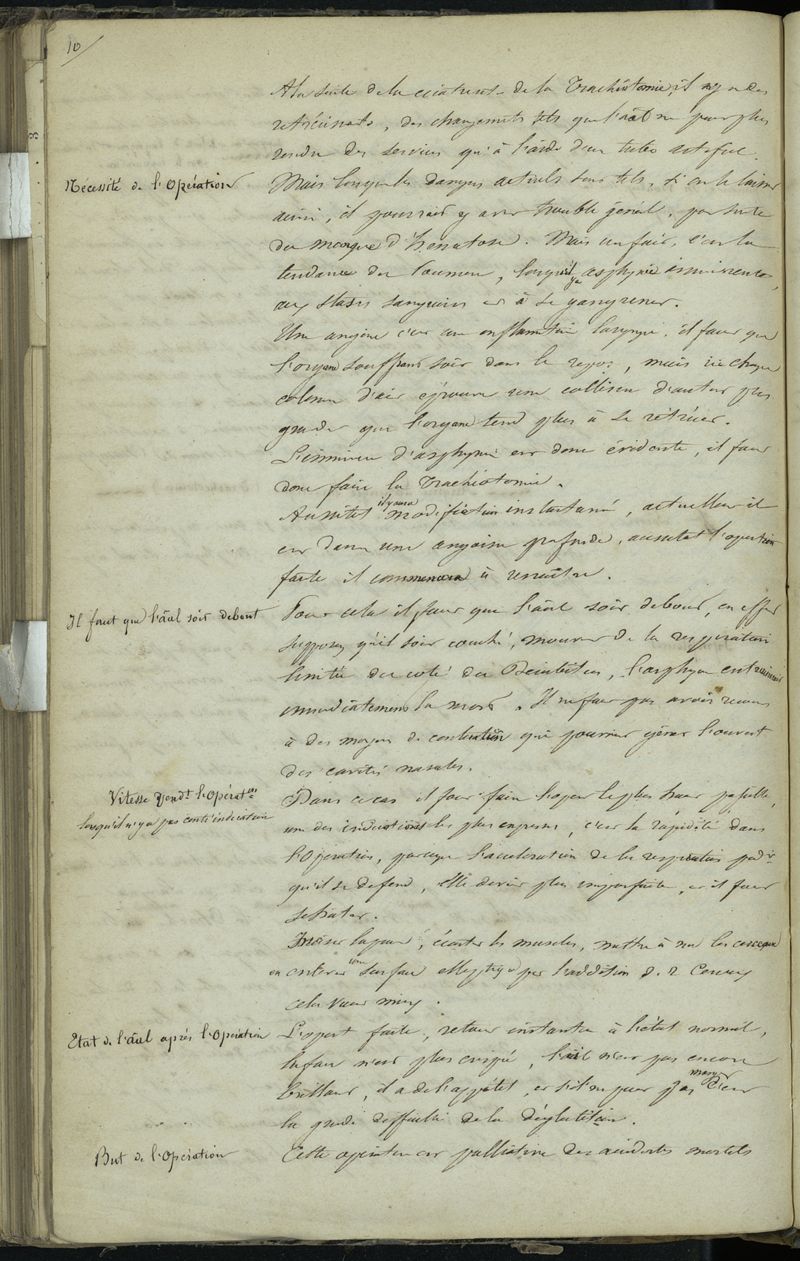 10/
A la suite de la cicatrice de la Trachéotomie, il y a des
rétrécissts, des changements tels que l'aâl ne peut plus
rendre des services qu'à l'aide d'un tube artificiel.
Nécessité de l'Opération
Mais lorsque les dangers actuels sont tels, si on le laisse
ainsi, il pourrait y avoir trouble général, par suite
du manque d'hématose. Mais un fait, c'est la
tendance du Poumon, lorsqu'il y a asphyxie imminente,
aux stases sanguines et à se gangrener.
Une angine c'est une inflammation laryngée. il faut que
l'organe souffrant soit dans le repos, mais ici chaque
colonne d'air éprouve une collision d'autant plus
grande que l'organe tend plus à se rétrécir.
L'imminence d'asphyxie est donc évidente, il faut
donc faire la Trachéotomie.
Aussitot il y aura modification instantanée, actuellement il
est dans une angoisse profonde, aussitot l'opération
faite il commencera à renaître.
Il faut que l'aâl soit debout
Pour cela il faut que l'aâl soit debout, en effet
supposez qu'il soit couché, mouvent de la respiration
limitée du coté du Décubitus, l'asphyxie entrainerait
immédiatement la mort. Il ne faut pas avoir recours
à des moyens de contention qui pourraient gêner l'ouvert
des cavités nasales.
Vitesse pendt l'Opératon
lorsqu'il n'y a pas contr'indication
Dans ce cas il faut faire le plus haut possible,
une des indications les plus expresses, c'est la rapidité dans
l'Opération, parceque l'accélération de la respiration pdt
qu'il se défend, elle devient plus imparfaite, et il faut
se hâter.
Inciser la peau, écarter les muscles, mettre à nu les cerceaux
en enlever une surface elliptique par l'addition de 2 cerceaux
cela vaut mieux.
Etat de l'aâl après l'Opération
L'opert faite, retour instantané à l'état normal,
la face n'est plus crispée, l'œil n'est pas encore
brillant, il a de l'appétit, et s'il ne peut pas manger c'est
la grande difficulté de la déglutition.
But de l'Opération
Cette opération est palliative des accidents mortels